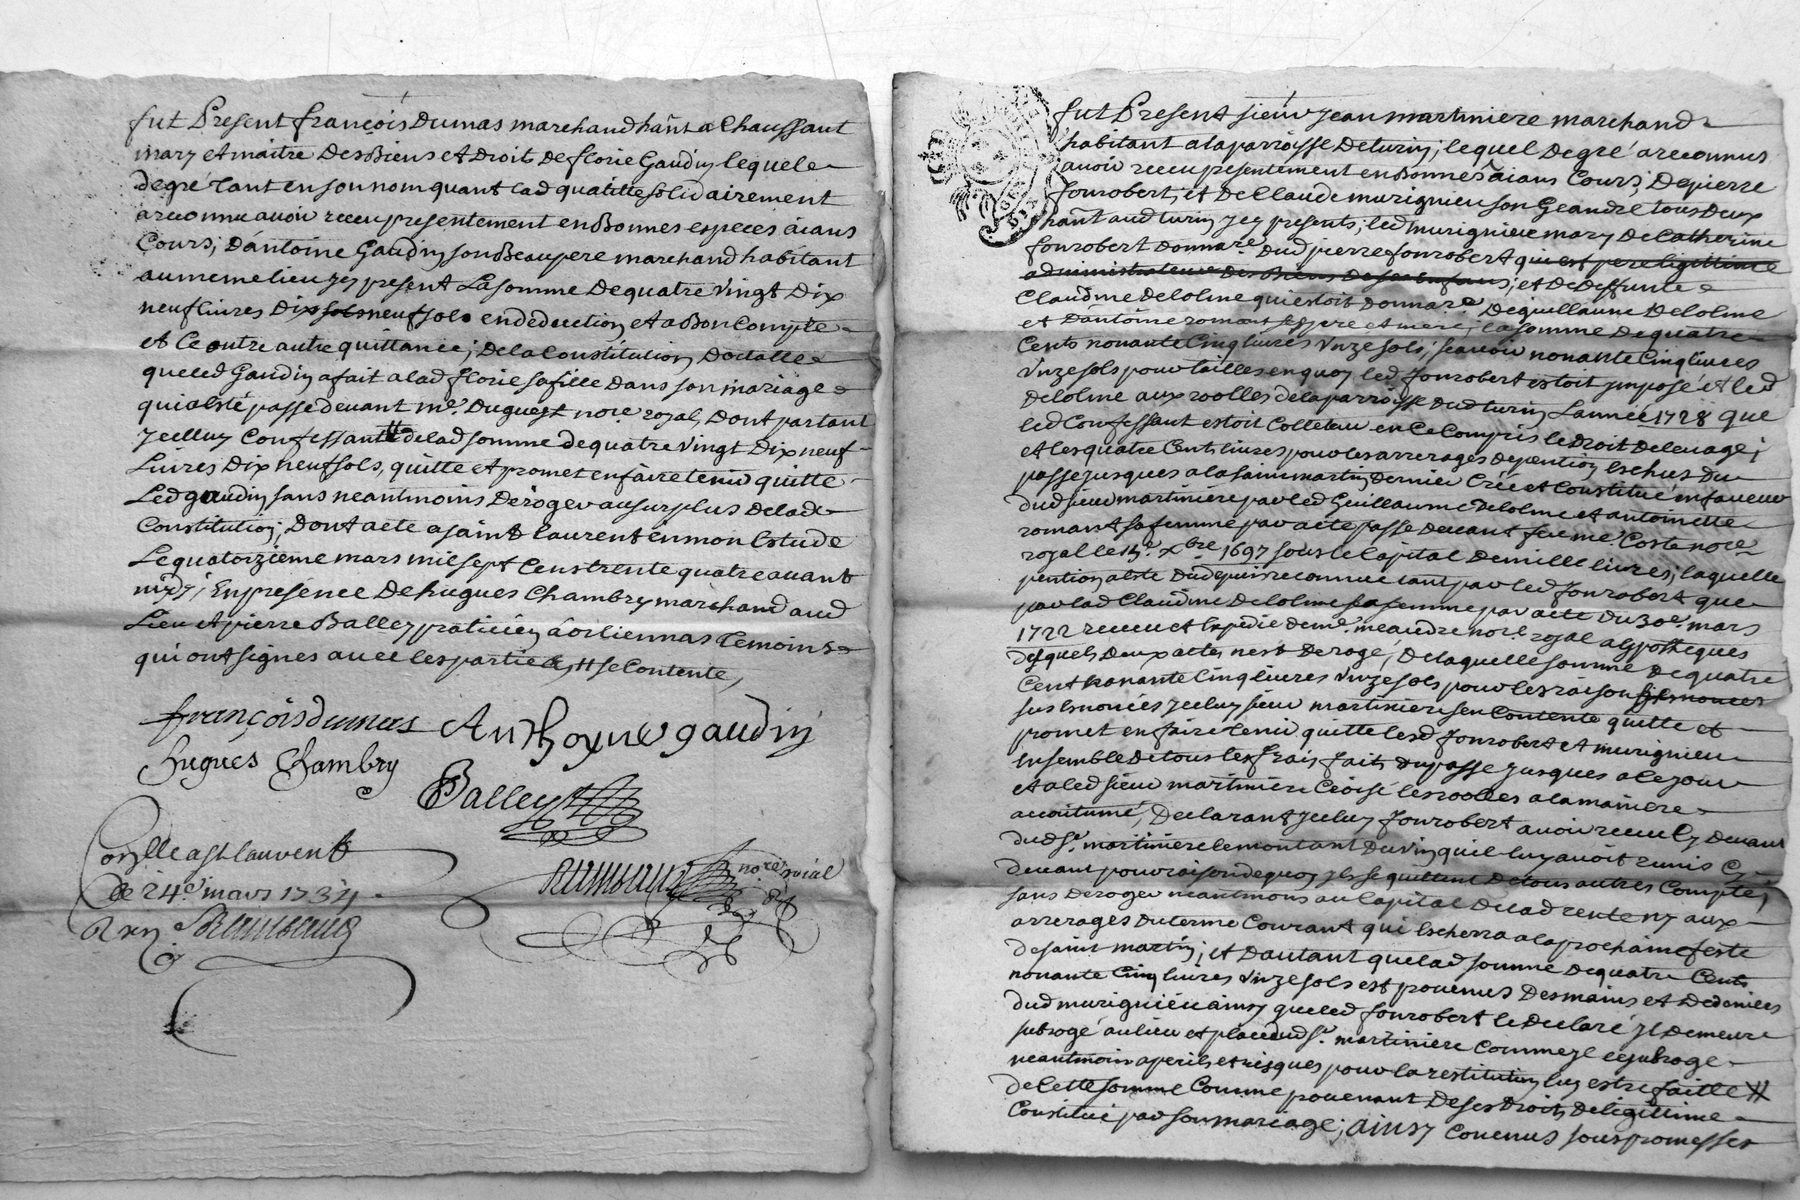 fut Present françois Dumas marchand hãnt a Chaussant
mary et maitre Des Biens et Droits de florie Gaudin lequel
de gré tant en son nom quant lad qualitte solidairement
a reconnu avoir receu presentement en Bonnes especes aiant
Cours; D'antoine Gaudin son Beaupere marchand habitant
au meme lieu jcy present La somme De quatre vingt Dix
neuf livres Dix sols neuf sols en deduction et a Bon Compte
et Ce outre autre quittance; de la Constitution Dotalle
que led Gaudin a fait a lad florie sa fille Dans son mariage
qui a esté passé devant me. Duguest nore royal, Dont partant
jcelluy Confessant # de lad somme de quatre vingt Dix neuf
Livres Dix neuf sols, quitte et promet en faire tenir quitte
Led gaudin sans neantmoins Deroger au surplus de lade
Constitution; Dont acte a saint laurent en mon Estude
Le quatorzieme mars mil sept Cens trente quatre avant
midy; En presence De hugues Chambry marchand aud
Lieu et pierre Balley praticien a orliennas temoins
qui ont signes avec les parties, # se Contente,
françois dumas Anthoyne gaudin
hugues Chambry
Balley
Conylle a st laurent
Le 24e. mars 1734
nore roial
fut Present sieur Jean martiniere marchand
habitant a la parroisse De turin; lequel De gré a reconnus
avoir receu presentement en Bonnes aiant Cours; De pierre
fonrobert; et De Claude murignieu son Geandre tous Deux
hãnt aud turin jcy presents; led murignieu mary De Catherine
fonrobert Donnare. Dud pierre fonrobert qui est pere legittime
administrateur des Biens de ses Enfans; et De Deffunte
Claudine Delolme qui estoit Donnare. De guillaume Delolme
et D'antoine romant ses pere et mere; la somme De quatre
Cents nonante Cinq livres unze sols; scavoir nonante Cinq livres
unze sols pour tailles en quoy led fonrobert estoit jmposé et led
Delolme aux roolles de la parroisse Dud turin L'année 1728 que
led Confessant estoit Colteteur en Ce Compris le Droit De levage;
et les quatre Cent livres pour les arrerages de pention Eschus Du
passé jusques a la saint martin Dernier Créé et Constitué en faveur
dud sieur martiniere par led Guillaume Delolme et antoinette
romant sa femme par acte passé Devant feu me. Coste nore
royal le Xbre 1697 sous le Capital De mille livres; laquelle
pention a esté Du depuis reconnue tant par led fonrobert que
par lad Claudine Delolme sa femme par acte Du 30e. mars
1722 receu et Expedié De me. meaudre nore. royal a hypotheques
desquels Deux actes n'est Derogé; De laquelle somme De quatre
Cent nonante Cinq livres unze sols pour les raison
sus Enoncés jceluy sieur martiniere s'en Contente quitte et
promet en faire tenir quitte lesd fonrobert et murignieu
Ensemble De tous les frais faits du passé jusques a Ce jour
et a led sieur martiniere Croisé les roolles a la maniere
accoutumé, Declarant jceluy fonrobert avoir receu Cy Devant
dud sr. martiniere le montant Du vin qu'il luy avoit remis Cy
devant pour raison de quoy jls se quittent De tous autres Compte;
sans Deroger neantmoins au Capital De lad rente ny aux
arrerages Du terme Courant qui Eschera a la prochaine feste
De saint martin; et D'autant que lad somme De quatre Cents
nonante Cinq livres unze sols est provenus Des mains et De deniers
Dud murignieu ainsy que led fonrobert le Declare jl Demeure
subrogé au lieu et place dud sr. martiniere Comme jl le subroge
neantmoins a perils et risques pour la restitution luy estre faitte #
de Cette somme Comme provenant De ses Droits De legittime
Constitué par son mariage; ainsy Convenus sous promesses